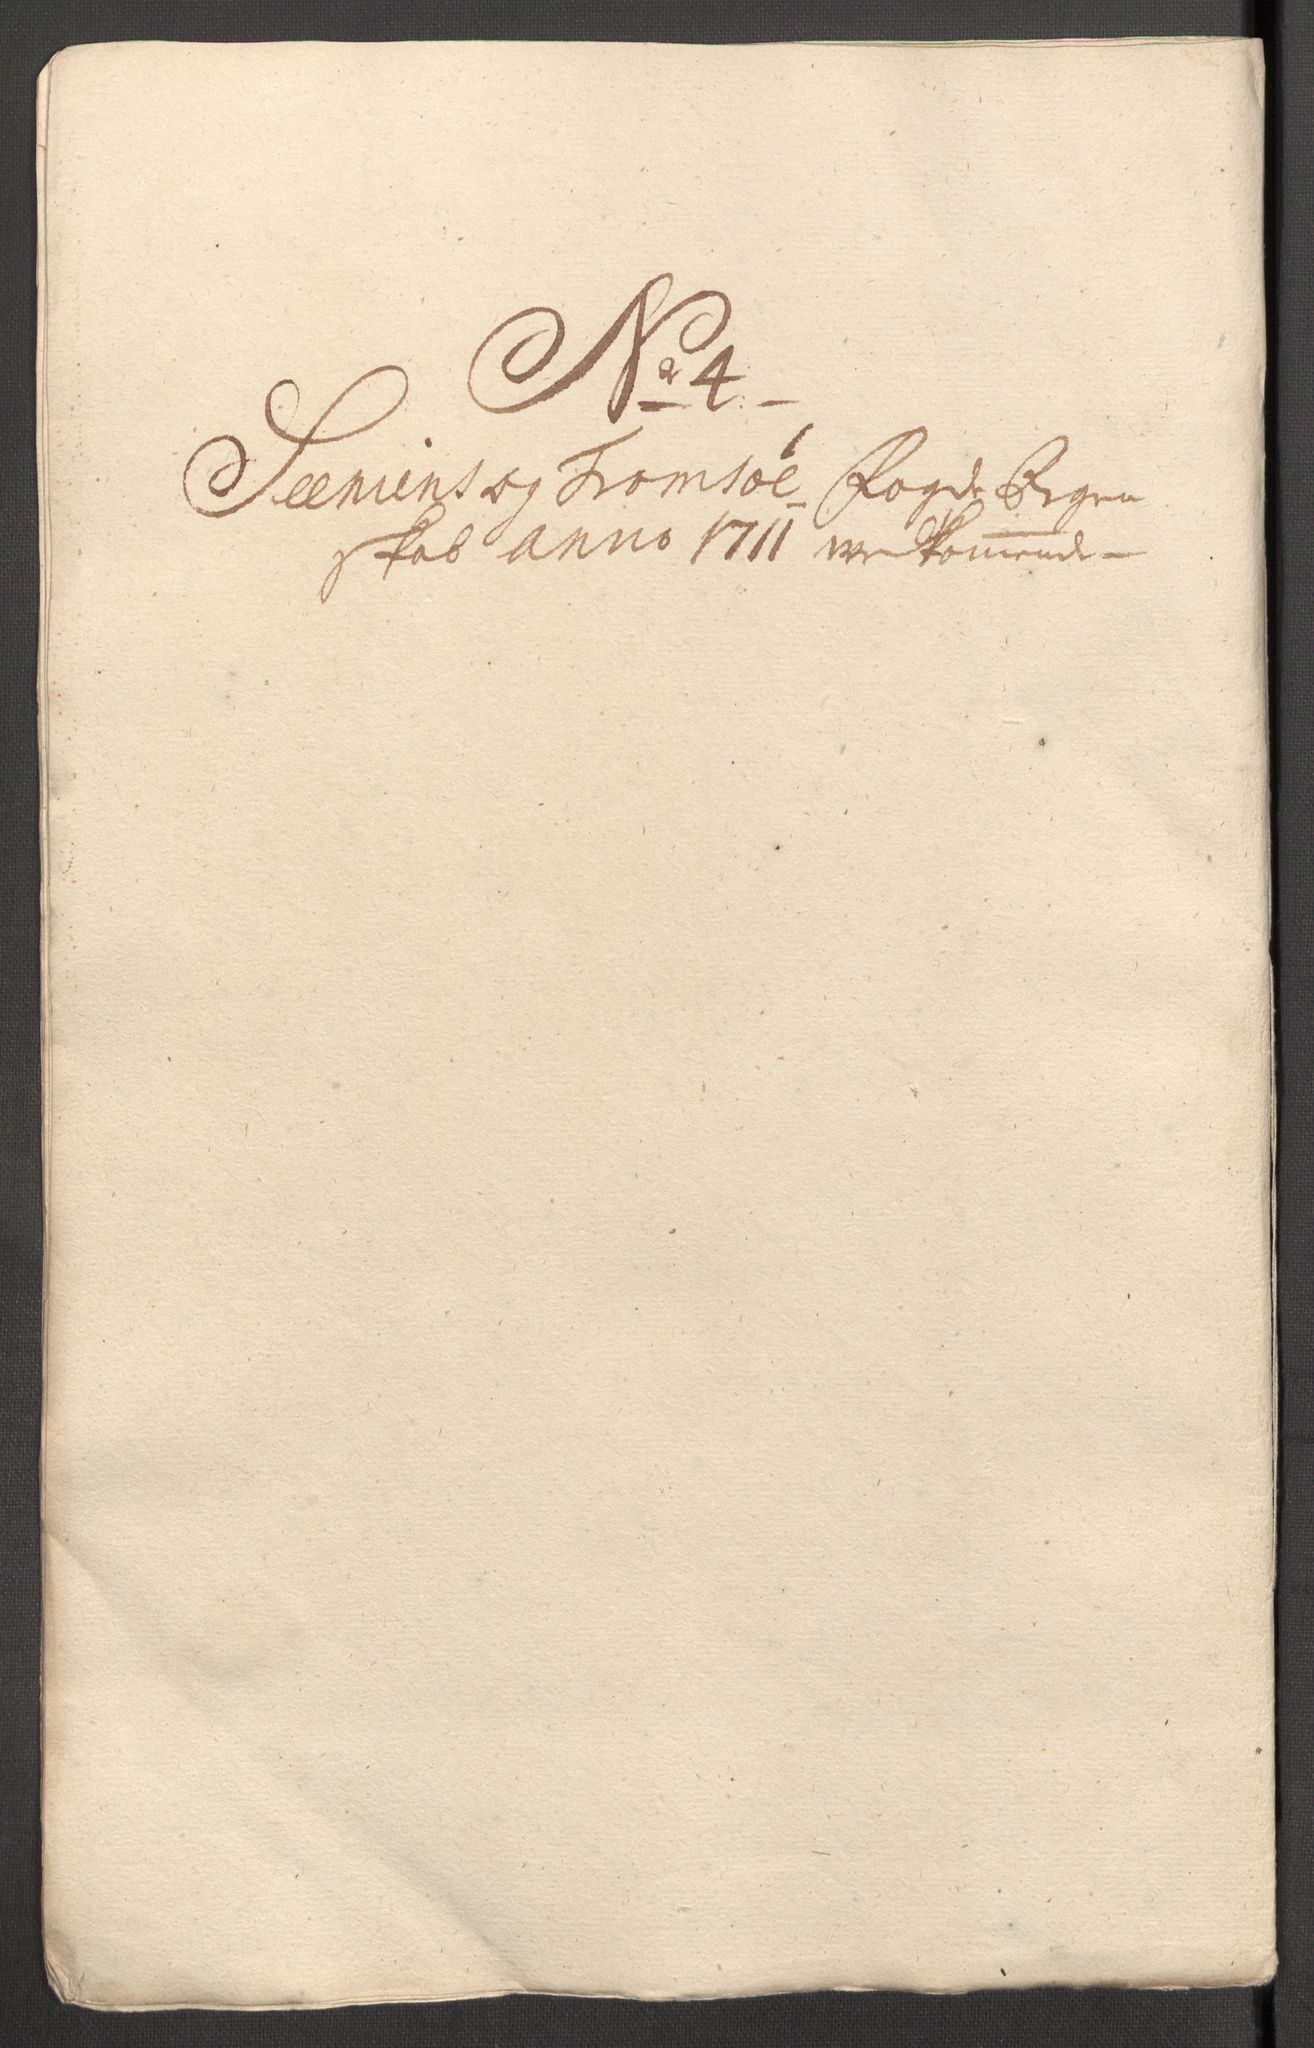 No 4.
Seeniens og Tromsøe Fogde Regen
skab anno 1711 wedkom̄ende